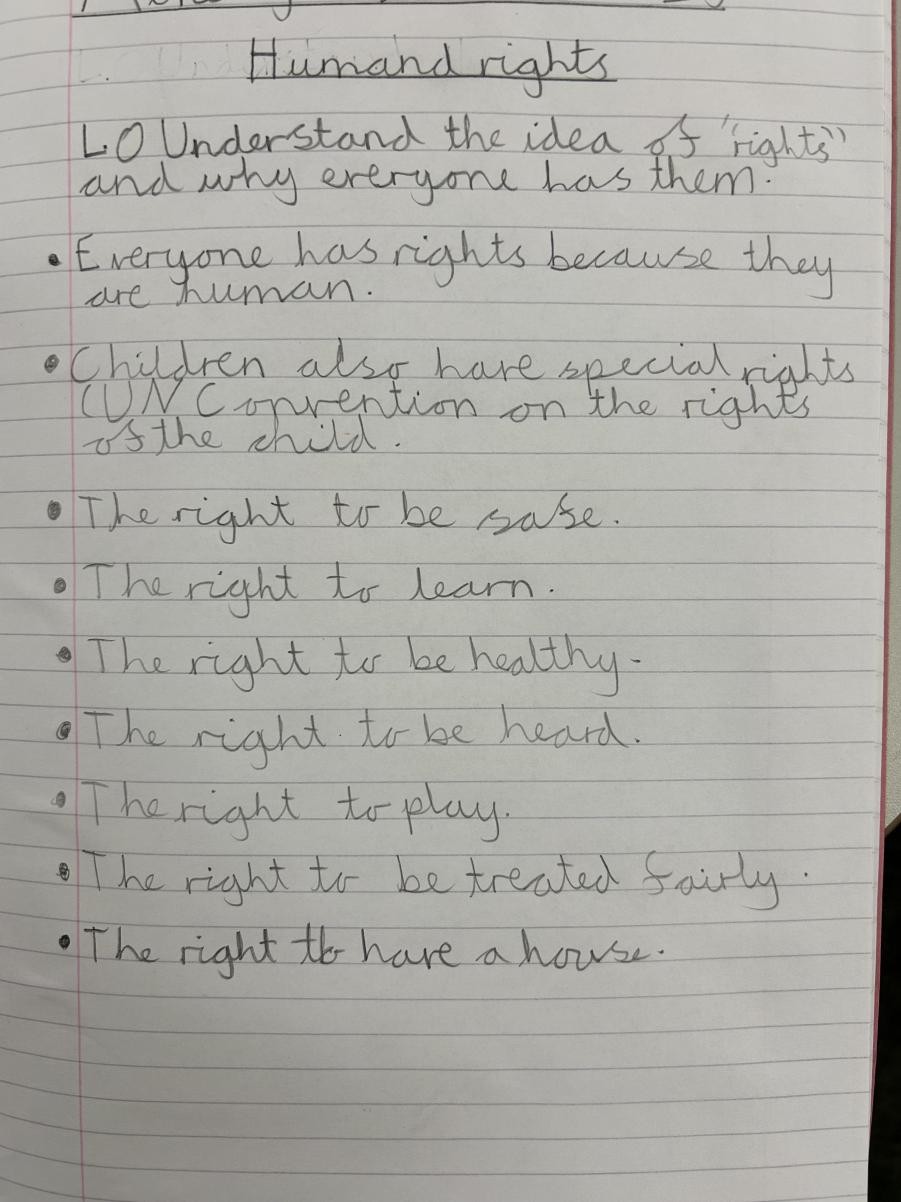 Humand rights
LO Understand the idea of "rights"
and why everyone has them.
• Everyone has rights because they
are human.
• Children also have special rights
(UN Convention on the rights
of the child.
• The right to be safe.
• The right to learn.
• The right to be healthy.
• The right to be heard.
• The right to play.
• The right to be treated fairly.
• The right to have a house.